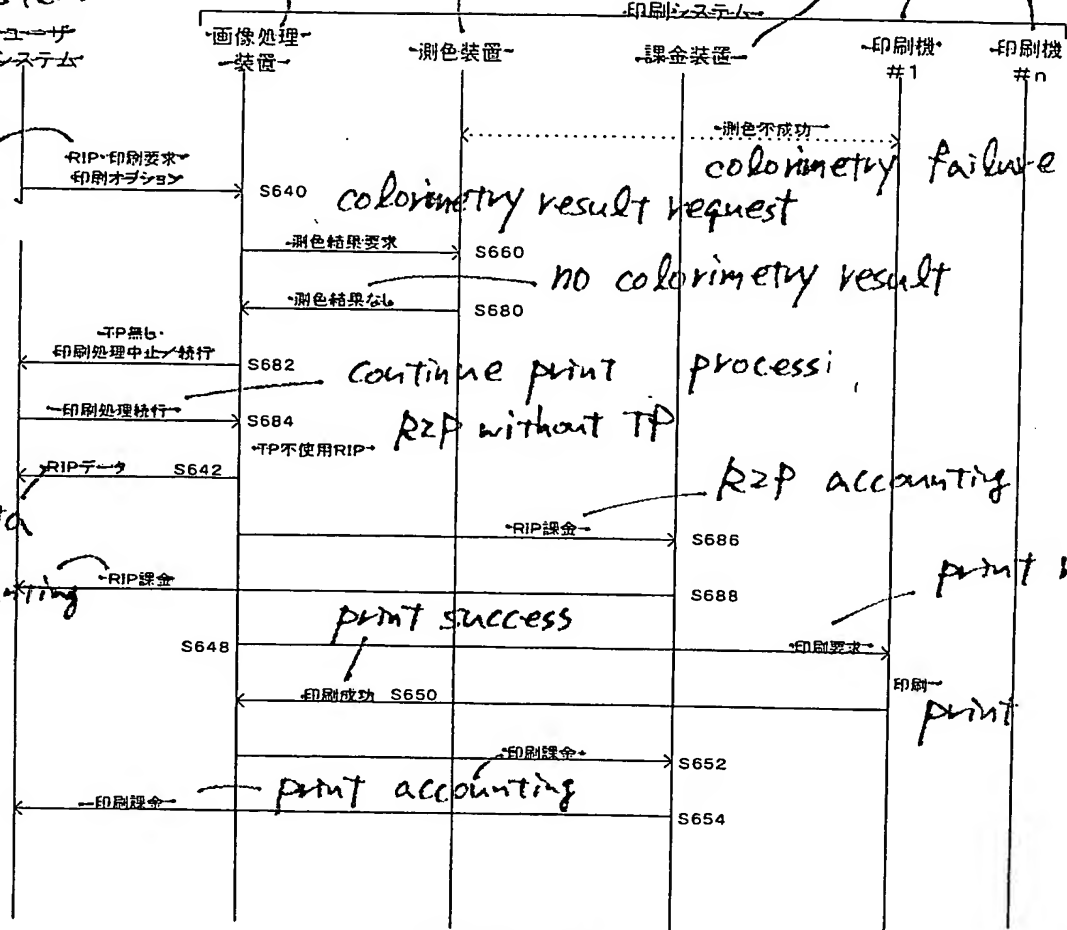 印刷システム
ユーザ
システム
画像処理
装置
測色装置
課金装置
印刷機
#1
印刷機
#n
測色不成功
colorimetry failure
RIP・印刷要求
印刷オプション
S640
colorimetry result request
測色結果要求
S660
no colorimetry result
測色結果なし
S680
TP無し・
印刷処理中止/続行
S682
continue print processi
印刷処理続行
S684
TP不使用RIP
RIP without TP
RIPデータ
S642
RIP accounting
RIP課金
S686
RIP課金
S688
print
print success
S648
印刷要求
印刷成功
S650
印刷
print
印刷課金
S652
print accounting
印刷課金
S654